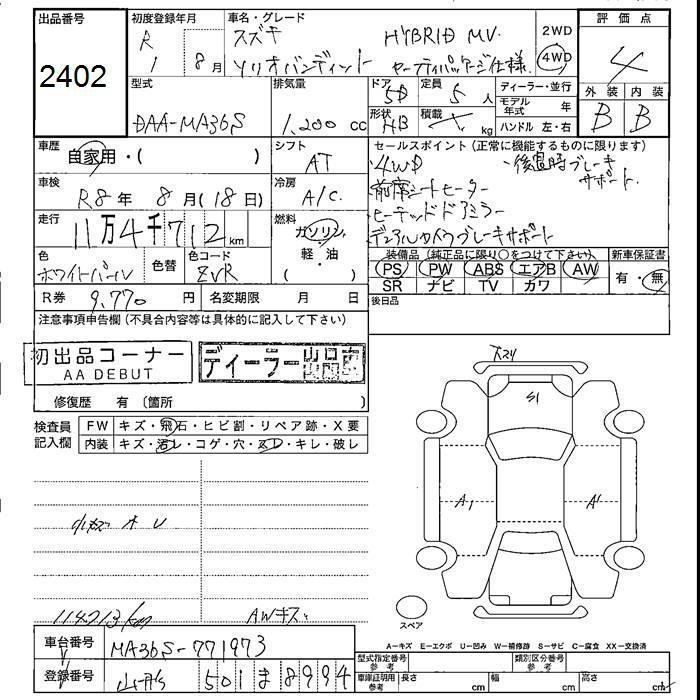 出品番号
2402
初度登録年月
R 1 8月
車名・グレード
スズキ HYBRID MV.
ソリオバンディット セーフティパッケージ仕様
2WD
4WD
評価点
4
外装 内装
B B
型式
DAA-MA36S
排気量
1,200 cc
ドア 5D
形状 HB
定員 5 人
積載 kg
ディーラー・並行
モデル年式 年
ハンドル 左・右
車歴
自家用・( )
シフト
AT
セールスポイント (正常に機能するものに限ります)
・4WD ・後退時ブレーキサポート.
・前席シートヒーター
・ヒーテッドドアミラー
・デュアルカメラブレーキサポート
車検
R8年 8月(18日)
冷房
A/C.
走行
11万4千712km
燃料
ガソリン
軽・油
( )
色
ホワイトパール
色替
色コード
ZVR
装備品(純正品に限り○をつけて下さい)
PS PW ABS エアB AW
SR ナビ TV カワ
新車保証書
有・無
R券 9,770 円
名変期限 月 日
後日品
注意事項申告欄(不具合内容等は具体的に記入して下さい)
初出品コーナー
AA DEBUT
ディーラー
修復歴 有 (箇所 )
検査員
記入欄
FW キズ・飛石・ヒビ割・リペア跡・X要
内装 キズ・汚レ・コゲ・穴・スレ・キレ・破レ
小キズ オ U
114713km
AWキズ
S1
A1
A1
スペア
A-キズ E-エクボ U-凹み W-補修跡 S-サビ C-腐食 XX-交換済
車台番号
MA36S-771973
登録番号
山形 501 ま 8994
型式指定番号 参考
類別区分番号 参考
車庫証明用 参考
長さ cm
幅 cm
高さ cm